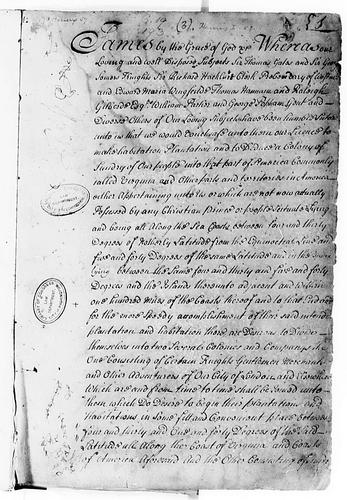 (3)
James by the Grace of God &c Whereas our
Loving and well Disposed Subjects Sir Thomas Gates and Sir George
Somers Knights Sir Richard Hackluit Clerk Prebendary of
and Edward Maria Wingfeilde Thomas Hannam and Raleigh
Gilberde Esqrs William Parker and George Popham Gent and
Diverse Others of Our Loving Subjects have been humble Suitors
unto us that we would Vouchsafe unto them our Licence to
make habitation Plantation and to Deduce a Colony of
Sundry of Our People into that part of America Commonly
called Virginia and Other parts and territories in America
either Appertaining unto us or which are not now actually
Possessed by any Christian Prince or people Scituate Lying
and being all Along the Sea Coasts between four and thirty
Degrees of Northerly Latitude from the Equinoctial Line and
five and forty Degrees of the same Latitude and in the
lying between the Same four and thirty and five and forty
Degrees and the Islands thereunto adjacent and within
one hundred Miles of the Coasts thereof and to that End and
for the more Speedy accomplishment of their said intended
plantation and habitation there are Desirous to Divide
themselves into two Several Colonies and Companys the
One Consisting of Certain Knights Gentlemen Merchants
and Other Adventurers of Our City of London and elsewhere
Which are and from time to time shall be Joined unto
them which Do Desire to begin their plantation and
Habitations in Some fitt and Convenient place between
four and thirty and One and forty Degrees of the said
Latitude all Along the Coast of Virginia and Coasts
of America Aforesaid and the Other Consisting of